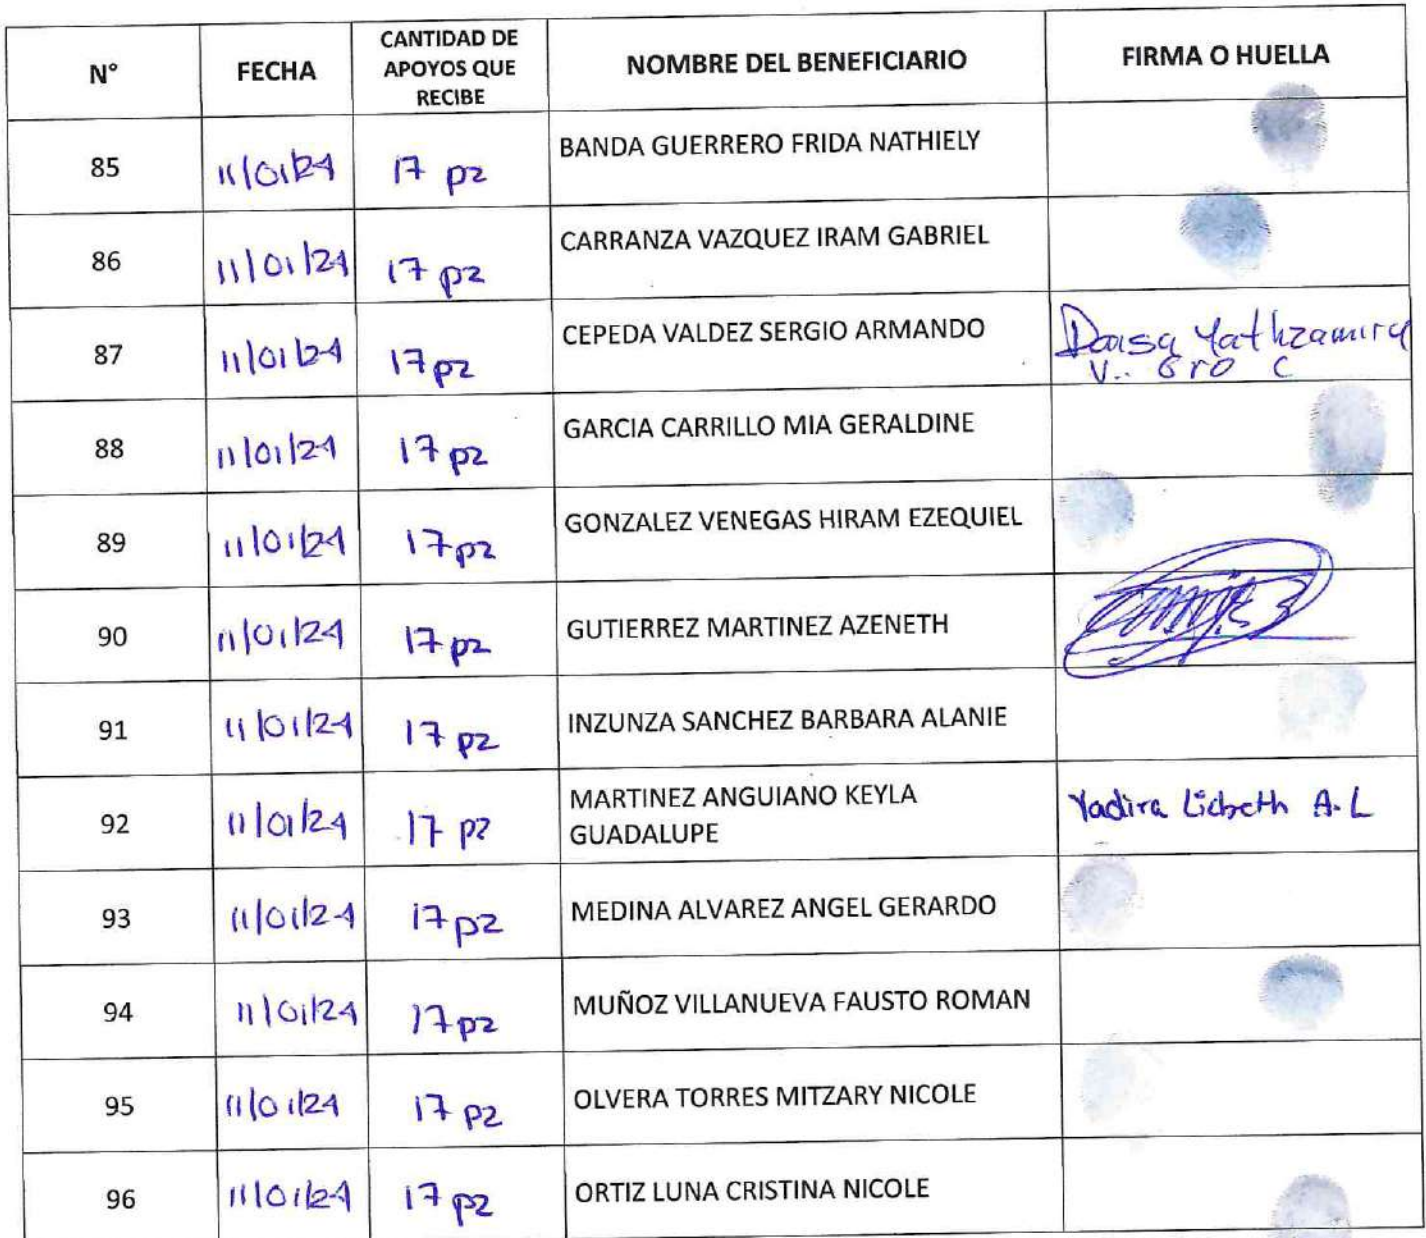 N° FECHA CANTIDAD DE APOYOS QUE RECIBE NOMBRE DEL BENEFICIARIO FIRMA O HUELLA
85 11/01/24 17 pz BANDA GUERRERO FRIDA NATHIELY
86 11/01/24 17 pz CARRANZA VAZQUEZ IRAM GABRIEL
87 11/01/24 17 pz CEPEDA VALDEZ SERGIO ARMANDO
88 11/01/24 17 pz GARCIA CARRILLO MIA GERALDINE
89 11/01/24 17 pz GONZALEZ VENEGAS HIRAM EZEQUIEL
90 11/01/24 17 pz GUTIERREZ MARTINEZ AZENETH
91 11/01/24 17 pz INZUNZA SANCHEZ BARBARA ALANIE
92 11/01/24 17 pz MARTINEZ ANGUIANO KEYLA Yadira Lizbeth A.L
GUADALUPE
93 11/01/24 17 pz MEDINA ALVAREZ ANGEL GERARDO
94 11/01/24 17 pz MUÑOZ VILLANUEVA FAUSTO ROMAN
95 11/01/24 17 pz OLVERA TORRES MITZARY NICOLE
96 11/01/24 17 pz ORTIZ LUNA CRISTINA NICOLE